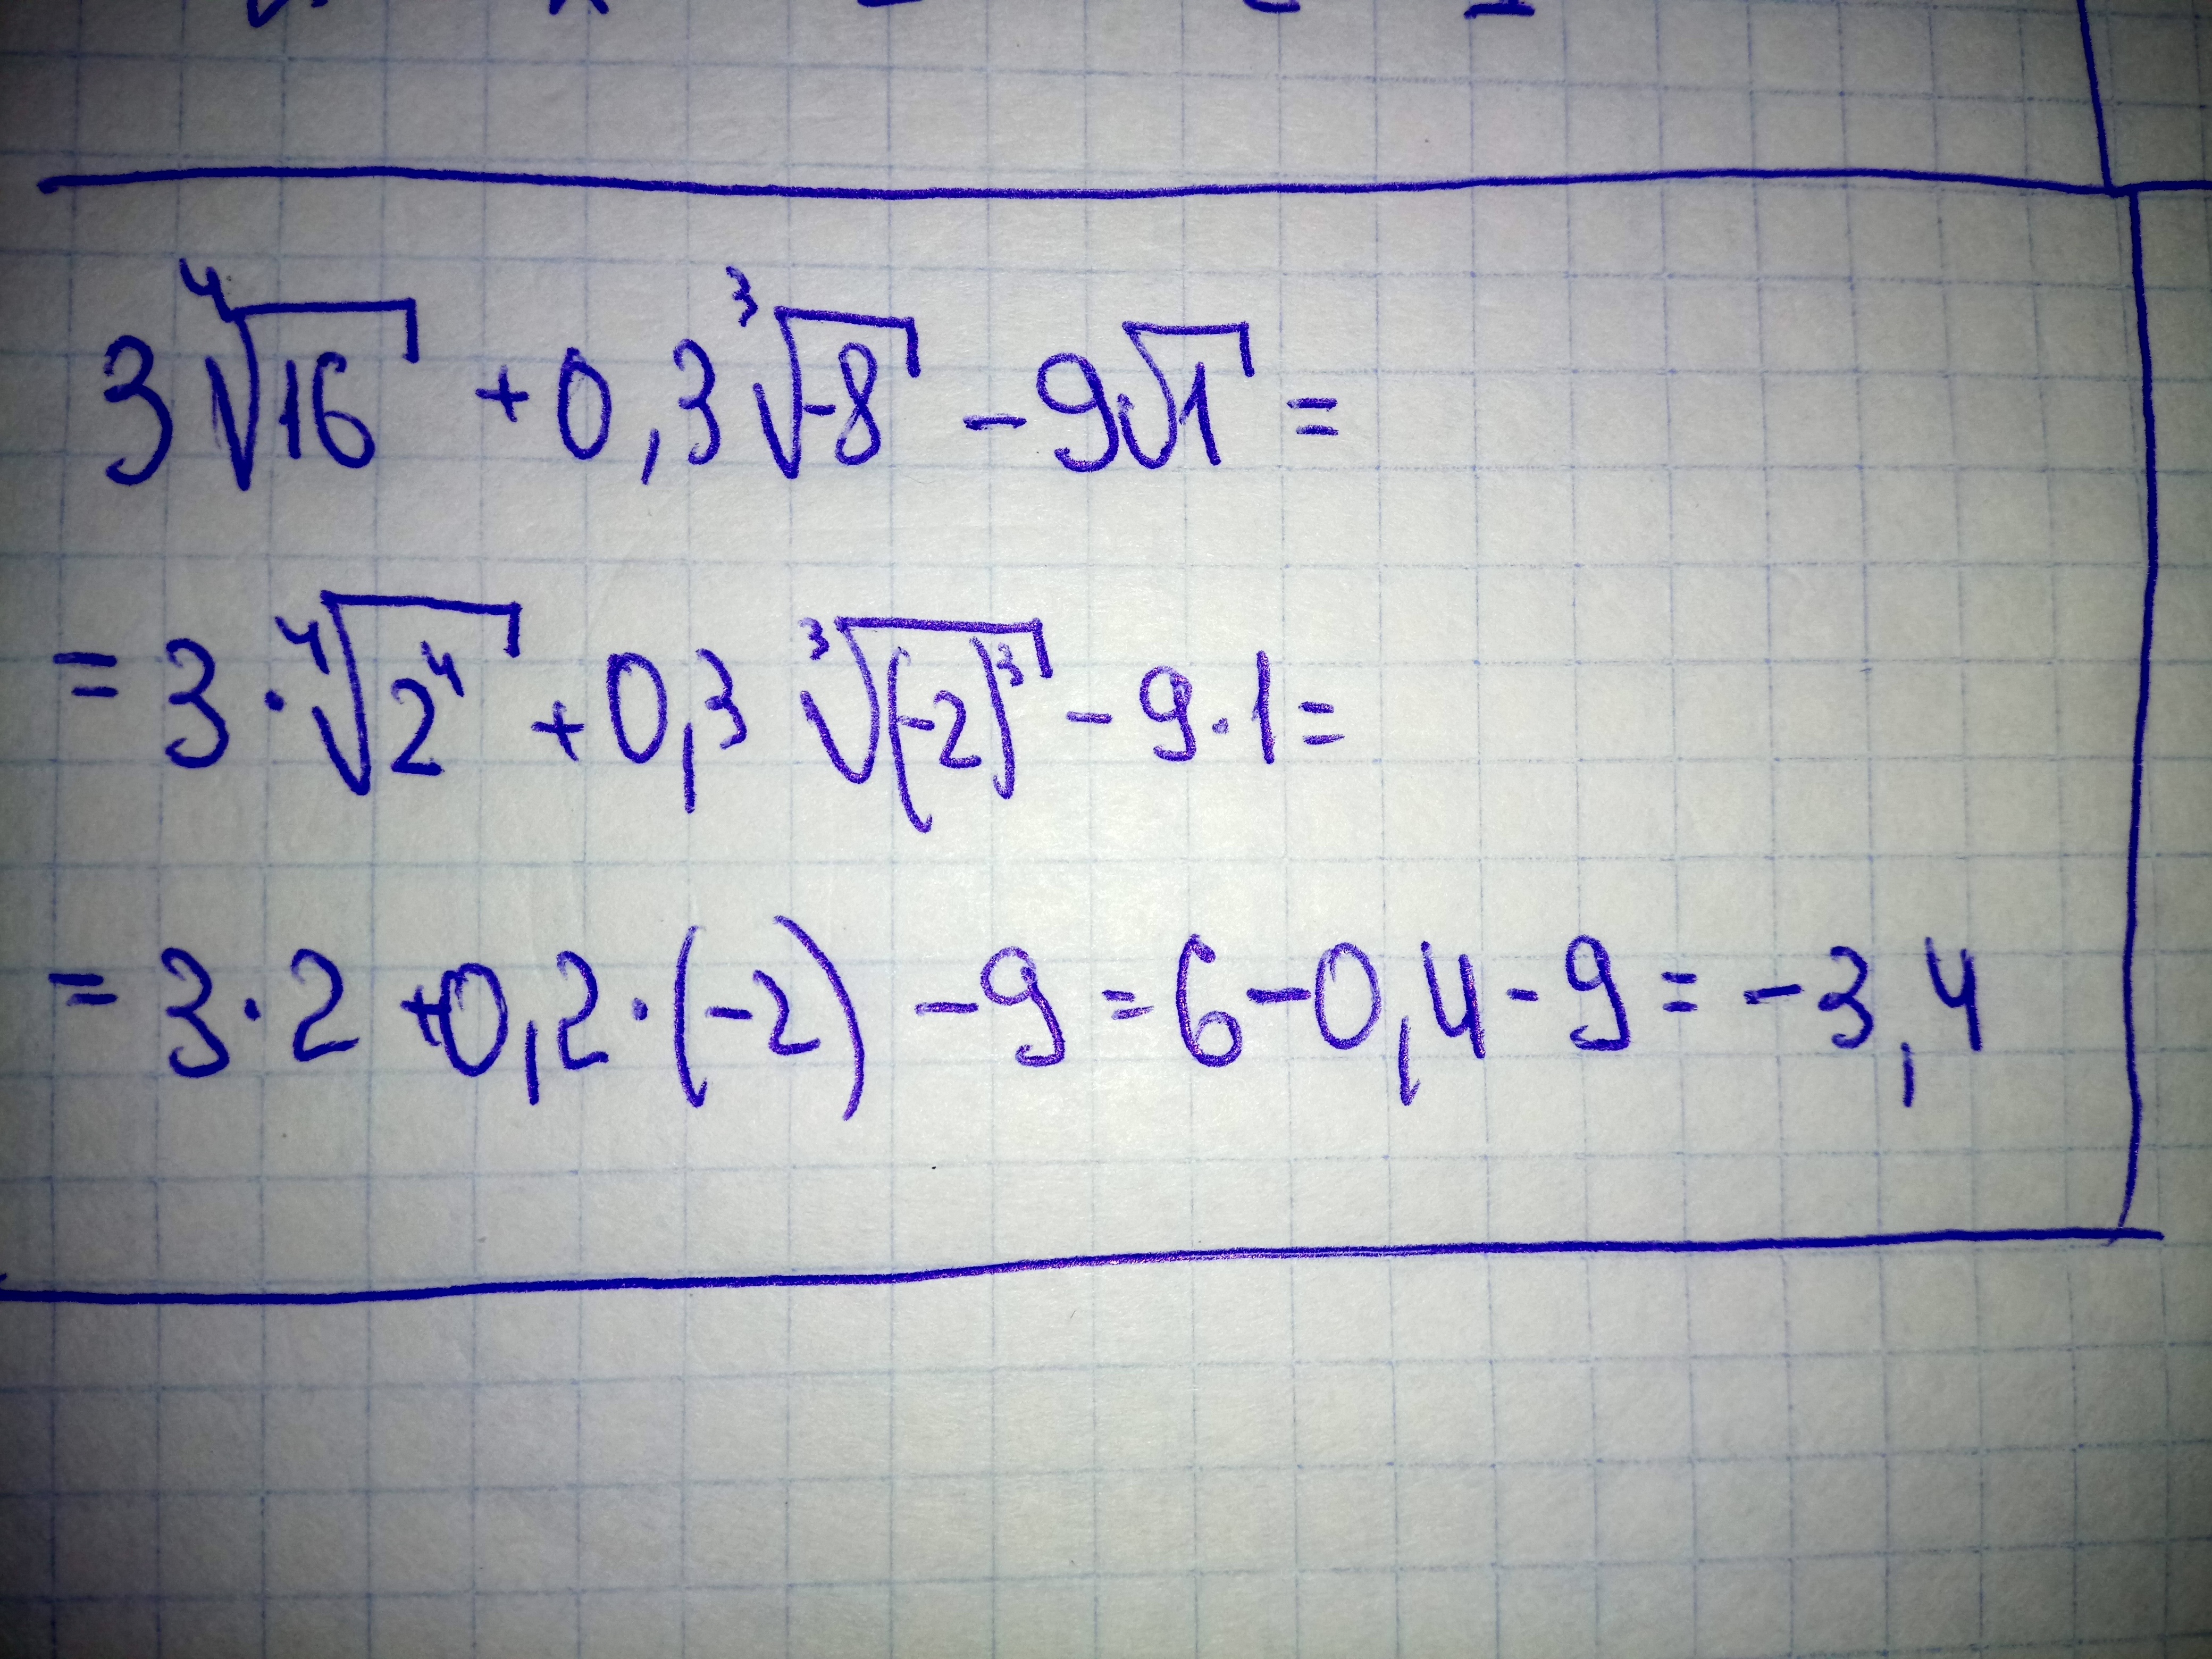 3⁴√16 + 0,3³√-8 - 9√1 =
= 3·⁴√2⁴ + 0,3 ³√(-2)³ - 9·1 =
= 3·2 + 0,2·(-2) - 9 = 6 - 0,4 - 9 = -3,4